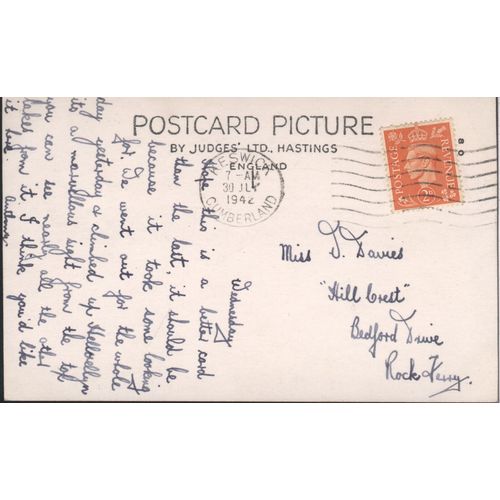 POSTCARD PICTURE
BY JUDGES' LTD., HASTINGS
ENGLAND
KESWICK
7-AM
30 JLY
1942
CUMBERLAND
POSTAGE
REVENUE
2D
80
Miss D. Davies
"Hill Crest"
Bedford Drive
Rock Ferry.
Wednesday
Hope this is a better card
than the last, it should be
because it took some looking
for. We went out for the whole
day yesterday & climbed up Hellvellyn
it's a marvellous sight from the top
you can see nearly all the other
lakes from it, I think you'd like
it here.